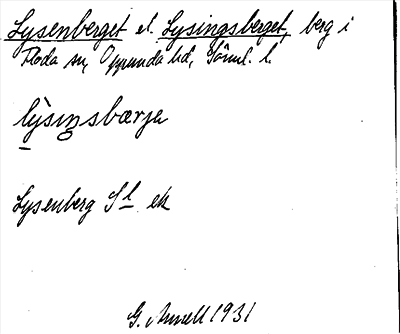 Lysenberget el. Lysingsberget, berg i
Floda sn, Oppunda hd, Söml. l.
lỳsiŋsbærja
Lysenberg Sl ek
G. Annell 1931